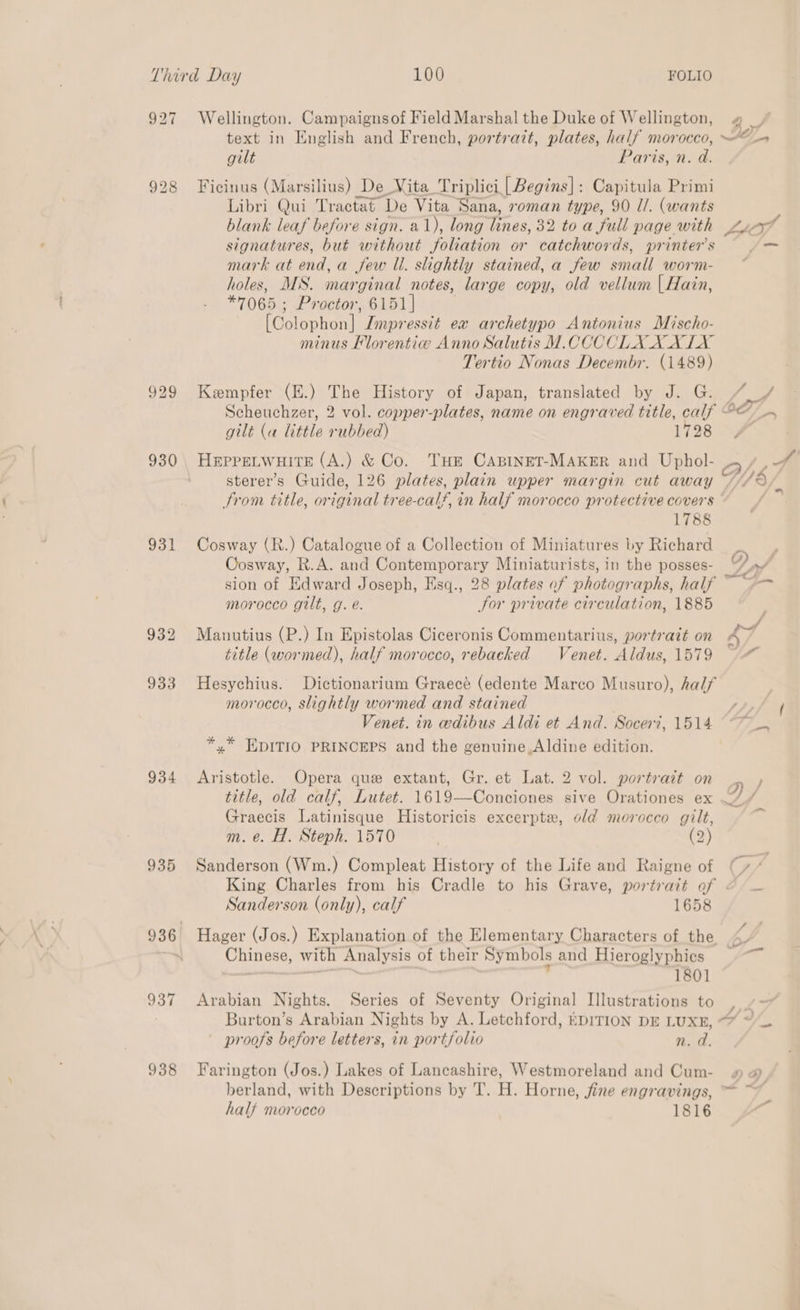 Third Day 100 FOLIO
927 Wellington. Campaigns of Field Marshal the Duke of Wellington,
text in English and French, portrait, plates, half morocco,
gilt Paris, n. d.
928 Ficinus (Marsilius) De Vita Triplici [Begins]: Capitula Primi
Libri Qui Tractat De Vita Sana, roman type, 90 ll. (wants
blank leaf before sign. a 1), long lines, 32 to a full page with
signatures, but without foliation or catchwords, printer's
mark at end, a few ll. slightly stained, a few small worm-
holes, MS. marginal notes, large copy, old vellum [Hain,
*7065; Proctor, 6151]
[Colophon] Impressit ex archetypo Antonius Mischo-
minus Florentiæ Anno Salutis M.CCCCLXXXIX
Tertio Nonas Decembr. (1489)
929 Kæmpfer (E.) The History of Japan, translated by J. G.
Scheuchzer, 2 vol. copper-plates, name on engraved title, calf
gilt (a little rubbed) 1728
930 HEPPELWHITE (A.) & Co. THE CABINET-MAKER and Uphol-
sterer's Guide, 126 plates, plain upper margin cut away
from title, original tree-calf, in half morocco protective covers
1788
931 Cosway (R.) Catalogue of a Collection of Miniatures by Richard
Cosway, R.A. and Contemporary Miniaturists, in the posses-
sion of Edward Joseph, Esq., 28 plates of photographs, half
morocco gilt, g. e. for private circulation, 1885
932 Manutius (P.) In Epistolas Ciceronis Commentarius, portrait on
title (wormed), half morocco, rebacked Venet. Aldus, 1579
933 Hesychius. Dictionarium Graecè (edente Marco Musuro), half
morocco, slightly wormed and stained
Venet. in ædibus Aldi et And. Soceri, 1514
*⁎* EDITIO PRINCEPS and the genuine Aldine edition.
934 Aristotle. Opera quæ extant, Gr. et Lat. 2 vol. portrait on
title, old calf, Lutet. 1619—Conciones sive Orationes ex
Graecis Latinisque Historicis excerptæ, old morocco gilt,
m. e. H. Steph. 1570 (2)
935 Sanderson (Wm.) Compleat History of the Life and Raigne of
King Charles from his Cradle to his Grave, portrait of
Sanderson (only), calf 1658
936 Hager (Jos.) Explanation of the Elementary Characters of the
Chinese, with Analysis of their Symbols and Hieroglyphics
1801
937 Arabian Nights. Series of Seventy Original Illustrations to
Burton's Arabian Nights by A. Letchford, EDITION DE LUXE,
proofs before letters, in portfolio n. d.
938 Farington (Jos.) Lakes of Lancashire, Westmoreland and Cum-
berland, with Descriptions by T. H. Horne, fine engravings,
half morocco 1816